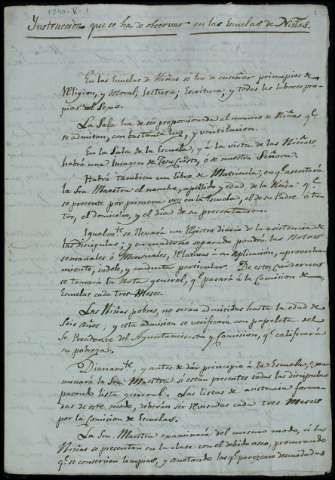 Instruccion que se ha de observar en las Escuelas de Niñas.
En las Escuelas de Niñas se ha de enseñar principios de
Religion, y Moral, lectura, Escritura, y todas las labores pro-
pias del Sexo.
La Sala ha de ser proporcionada al numero de Niñas qe.
se admitan, con bastante luz, y ventilacion.
En la Sala de la Escuela, y à la vista de las Niñas,
habrá una Imagen de Jesu Cristo, ò de nuestra Señora.
Habrá tambien un libro de Matricula, en qe. asentará
la Sra. Maestra el nombre, apellido y edad de la Niña qe.
se presente por primera vez en la Escuela, el de su Padre ò tu-
tor, el domicilio, y el dia de su presentacion.
Igualmte. se llevará un Registro diario de la asistencia de
las discipulas; y en cuaderno separado pondrá las Notas
semanales ò Mensuales, relativas à su aplicacion, aprovecha-
miento, indole, y conducta particular. De este Cuaderno
se formará la Nota general, qe. pasará à la Comision de
Escuelas cada tres Meses.
Las Niñas pobres, no serán admitidas hasta la edad de
Seis años; y esta admision se verificará con papeleta del
Sr. Presidente del Ayuntamiento, ò Comision, qe. calificará
su pobreza.
Diariamte. y antes de dar principio à la Escuela, exa-
minará la Sra. Maestra si están presentes todas las discipulas
pasando lista general. Las listas de asistencia forma-
das de este modo, deberán ser revisadas cada tres Meses
por la Comision de Escuelas.
La Sra. Maestra examinará del mismo modo, si las
Niñas se presentan en la clase con el debido aseo, procurando
qe. se conserven limpias, y anotando las qe. parezcan descuidadas